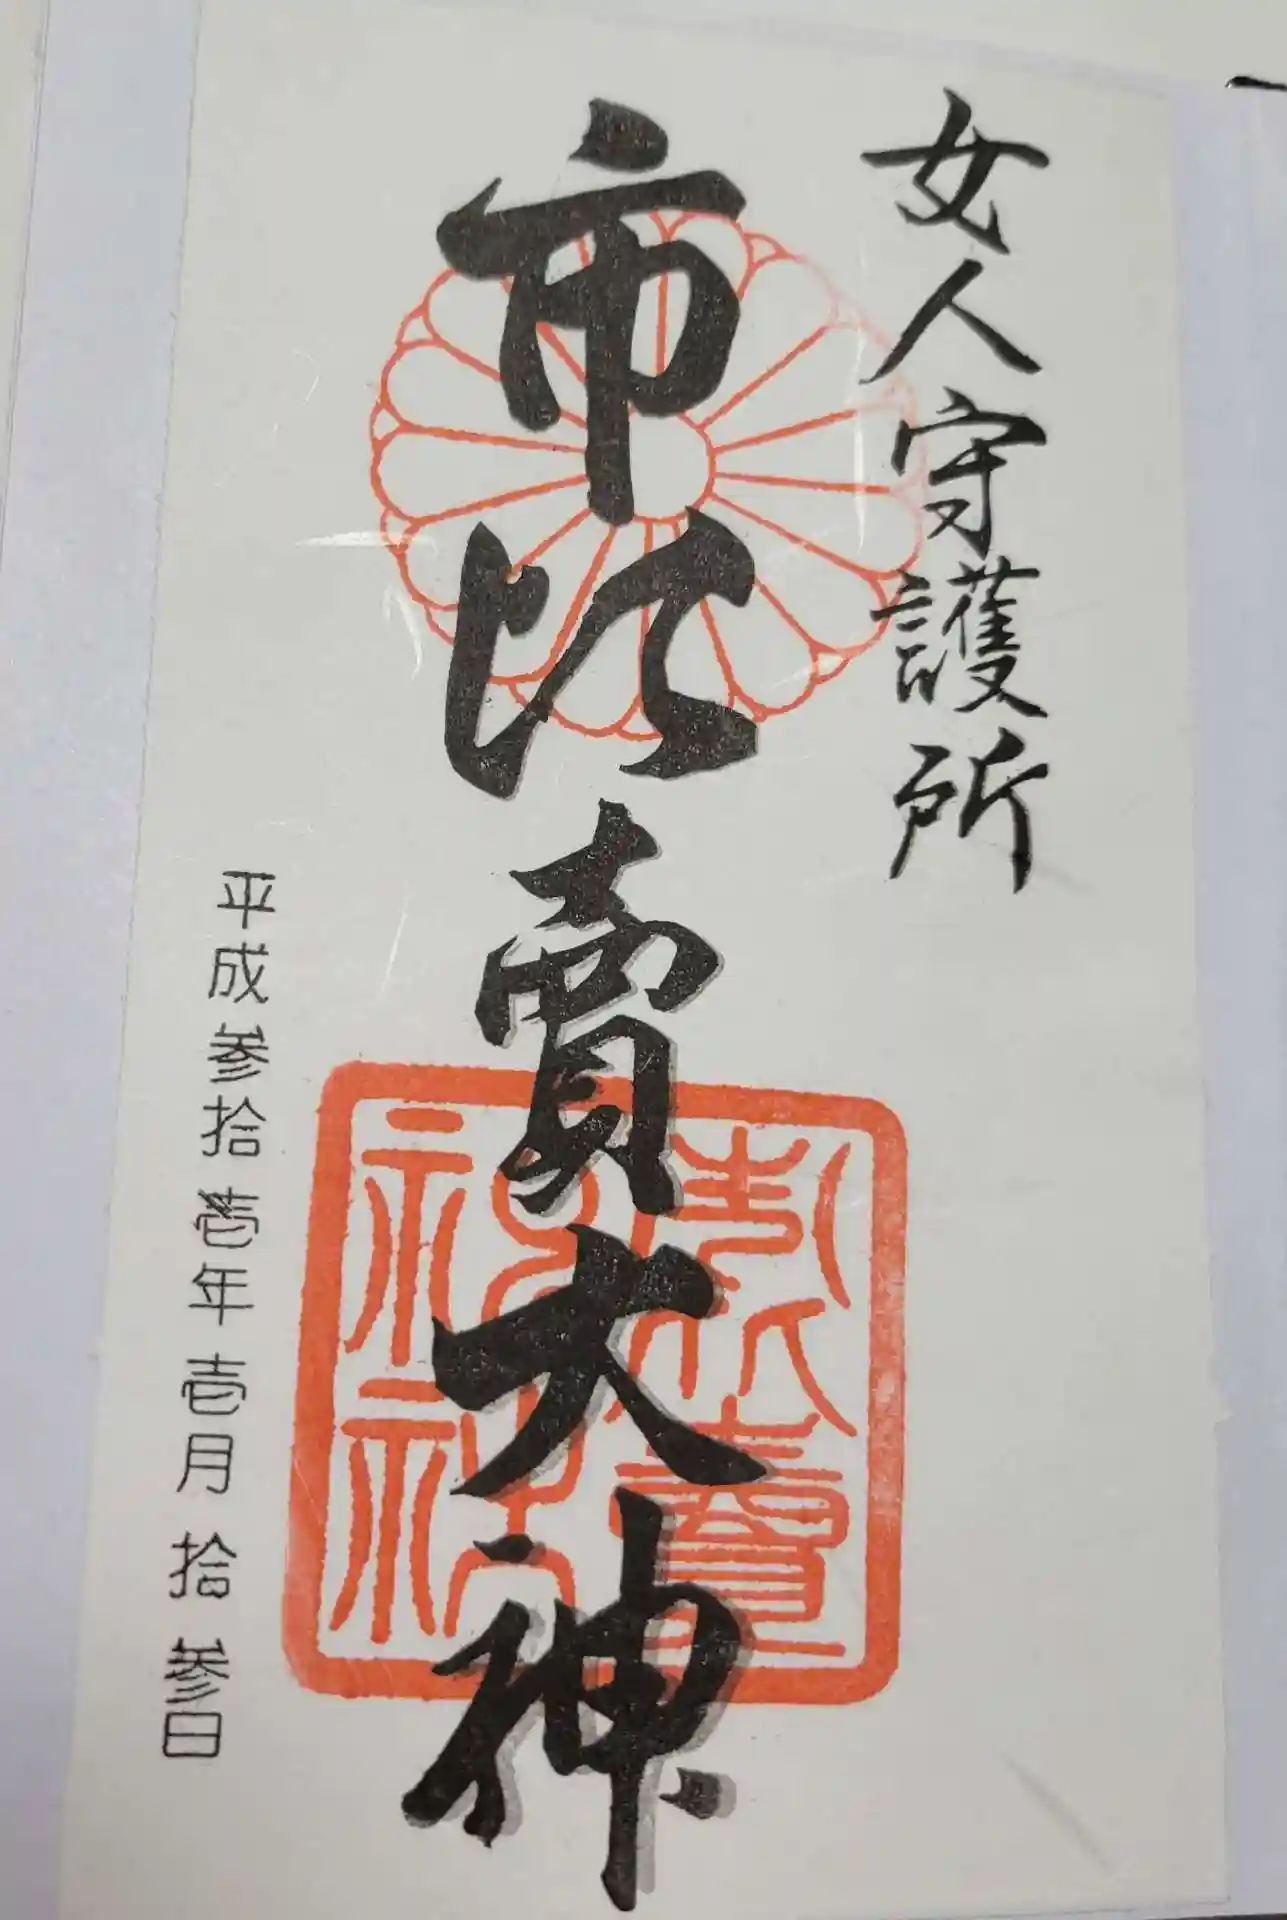 女人守護所
市比賣大神
平成参拾壱年壱月拾参日
市比賣
神社